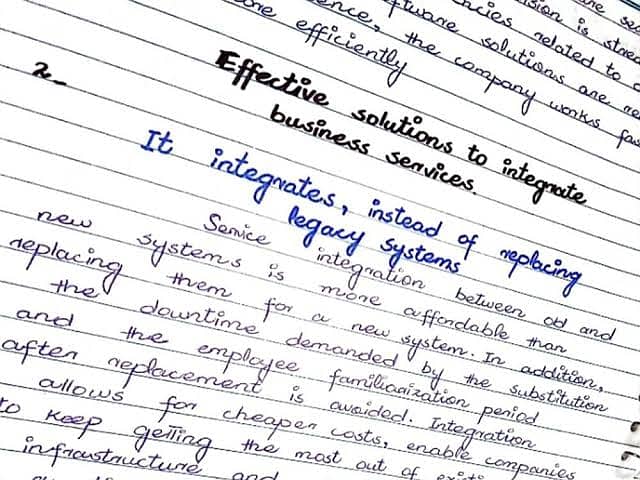 is stored
related to
software solutions are
ence, the company works fas
more efficiently
2-
Effective solutions to integrate
business services.
It integrates, instead of replacing
legacy systems
Service integration between old and
new systems is more affordable than
replacing them for a new system. In addition,
the downtime demanded by the substitution
and the employee familiarization period
after replacement is avoided. Integration
allows for cheaper costs, enable companies
to keep getting the most out of
infraustructure and